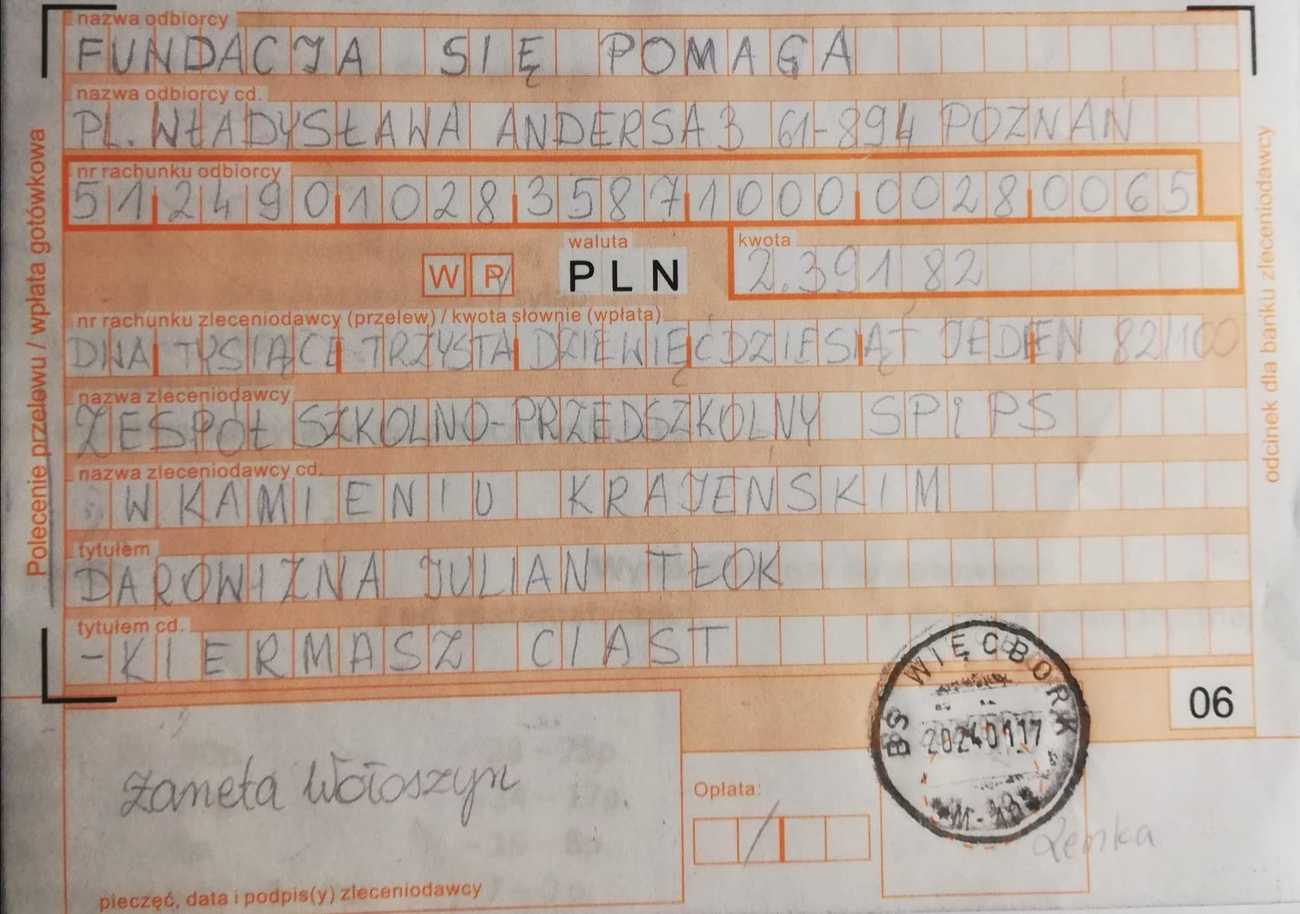 nazwa odbiorcy
FUNDACJA SIĘ POMAGA
nazwa odbiorcy cd.
PL. WŁADYSŁAWA ANDERSA 3 61-894 POZNAŃ
nr rachunku odbiorcy
51 2490 1028 3587 1000 0028 0065
waluta
kwota
W P PLN 2.391 82
nr rachunku zleceniodawcy (przelew) / kwota słownie (wpłata)
DWA TYSIĄCE TRZYSTA DZIEWIĘĆDZIESIĄT JEDEN 82/100
nazwa zleceniodawcy
ZESPÓŁ SZKOLNO-PRZEDSZKOLNY SP i PS
nazwa zleceniodawcy cd.
W KAMIENIU KRAJEŃSKIM
tytułem
DAROWIZNA JULIAN TŁOK
tytułem cd.
- KIERMASZ CIAST
06
BS WIĘCBORK
20240117
Żaneta Wołoszyn
Opłata:
pieczęć, data i podpis(y) zleceniodawcy
Polecenie przelewu / wpłata gotówkowa
odcinek dla banku zleceniodawcy